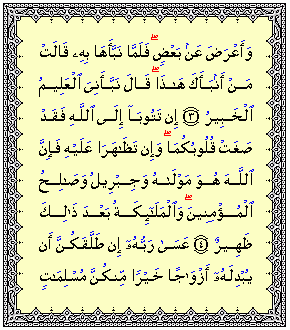 وَأَعْرَضَ عَنۢ بَعْضٍۖ فَلَمَّا نَبَّأَهَا بِهِۦ قَالَتْ
مَنْ أَنۢبَأَكَ هَٰذَاۖ قَالَ نَبَّأَنِىَ ٱلْعَلِيمُ
ٱلْخَبِيرُ ٣ إِن تَتُوبَآ إِلَى ٱللَّهِ فَقَدْ
صَغَتْ قُلُوبُكُمَاۖ وَإِن تَظَٰهَرَا عَلَيْهِ فَإِنَّ
ٱللَّهَ هُوَ مَوْلَىٰهُ وَجِبْرِيلُ وَصَٰلِحُ
ٱلْمُؤْمِنِينَۖ وَٱلْمَلَٰٓئِكَةُ بَعْدَ ذَٰلِكَ
ظَهِيرٌ ٤ عَسَىٰ رَبُّهُۥٓ إِن طَلَّقَكُنَّ أَن
يُبْدِلَهُۥٓ أَزْوَٰجًا خَيْرًا مِّنكُنَّ مُسْلِمَٰتٍ